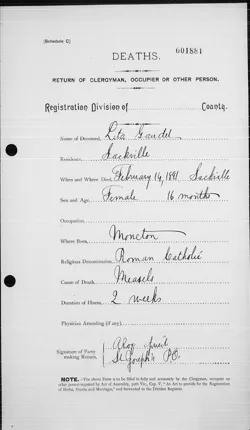 (Schedule C)
601881
DEATHS.
RETURN OF CLERGYMAN, OCCUPIER OR OTHER PERSON.
Registration Division of County.
Name of Deceased, Rita Gaudet
Residence, Sackville
When and Where Died, February 14, 1891 Sackville
Sex and Age, Female 16 months
Occupation,
Where Born, Moncton
Religious Denomination, Roman Catholic
Cause of Death, Measels
Duration of Illness, 2 weeks
Physician Attending (if any),
Signature of Party
making Return,
St. Joseph's P.O.
NOTE.—The above Form is to be filled in fully and accurately by the Clergyman, occupier or other person required by Act of Assembly, 50th Vic., Cap. V, "An Act to provide for the Registration of Births, Deaths and Marriages," and forwarded to the Division Registrar.